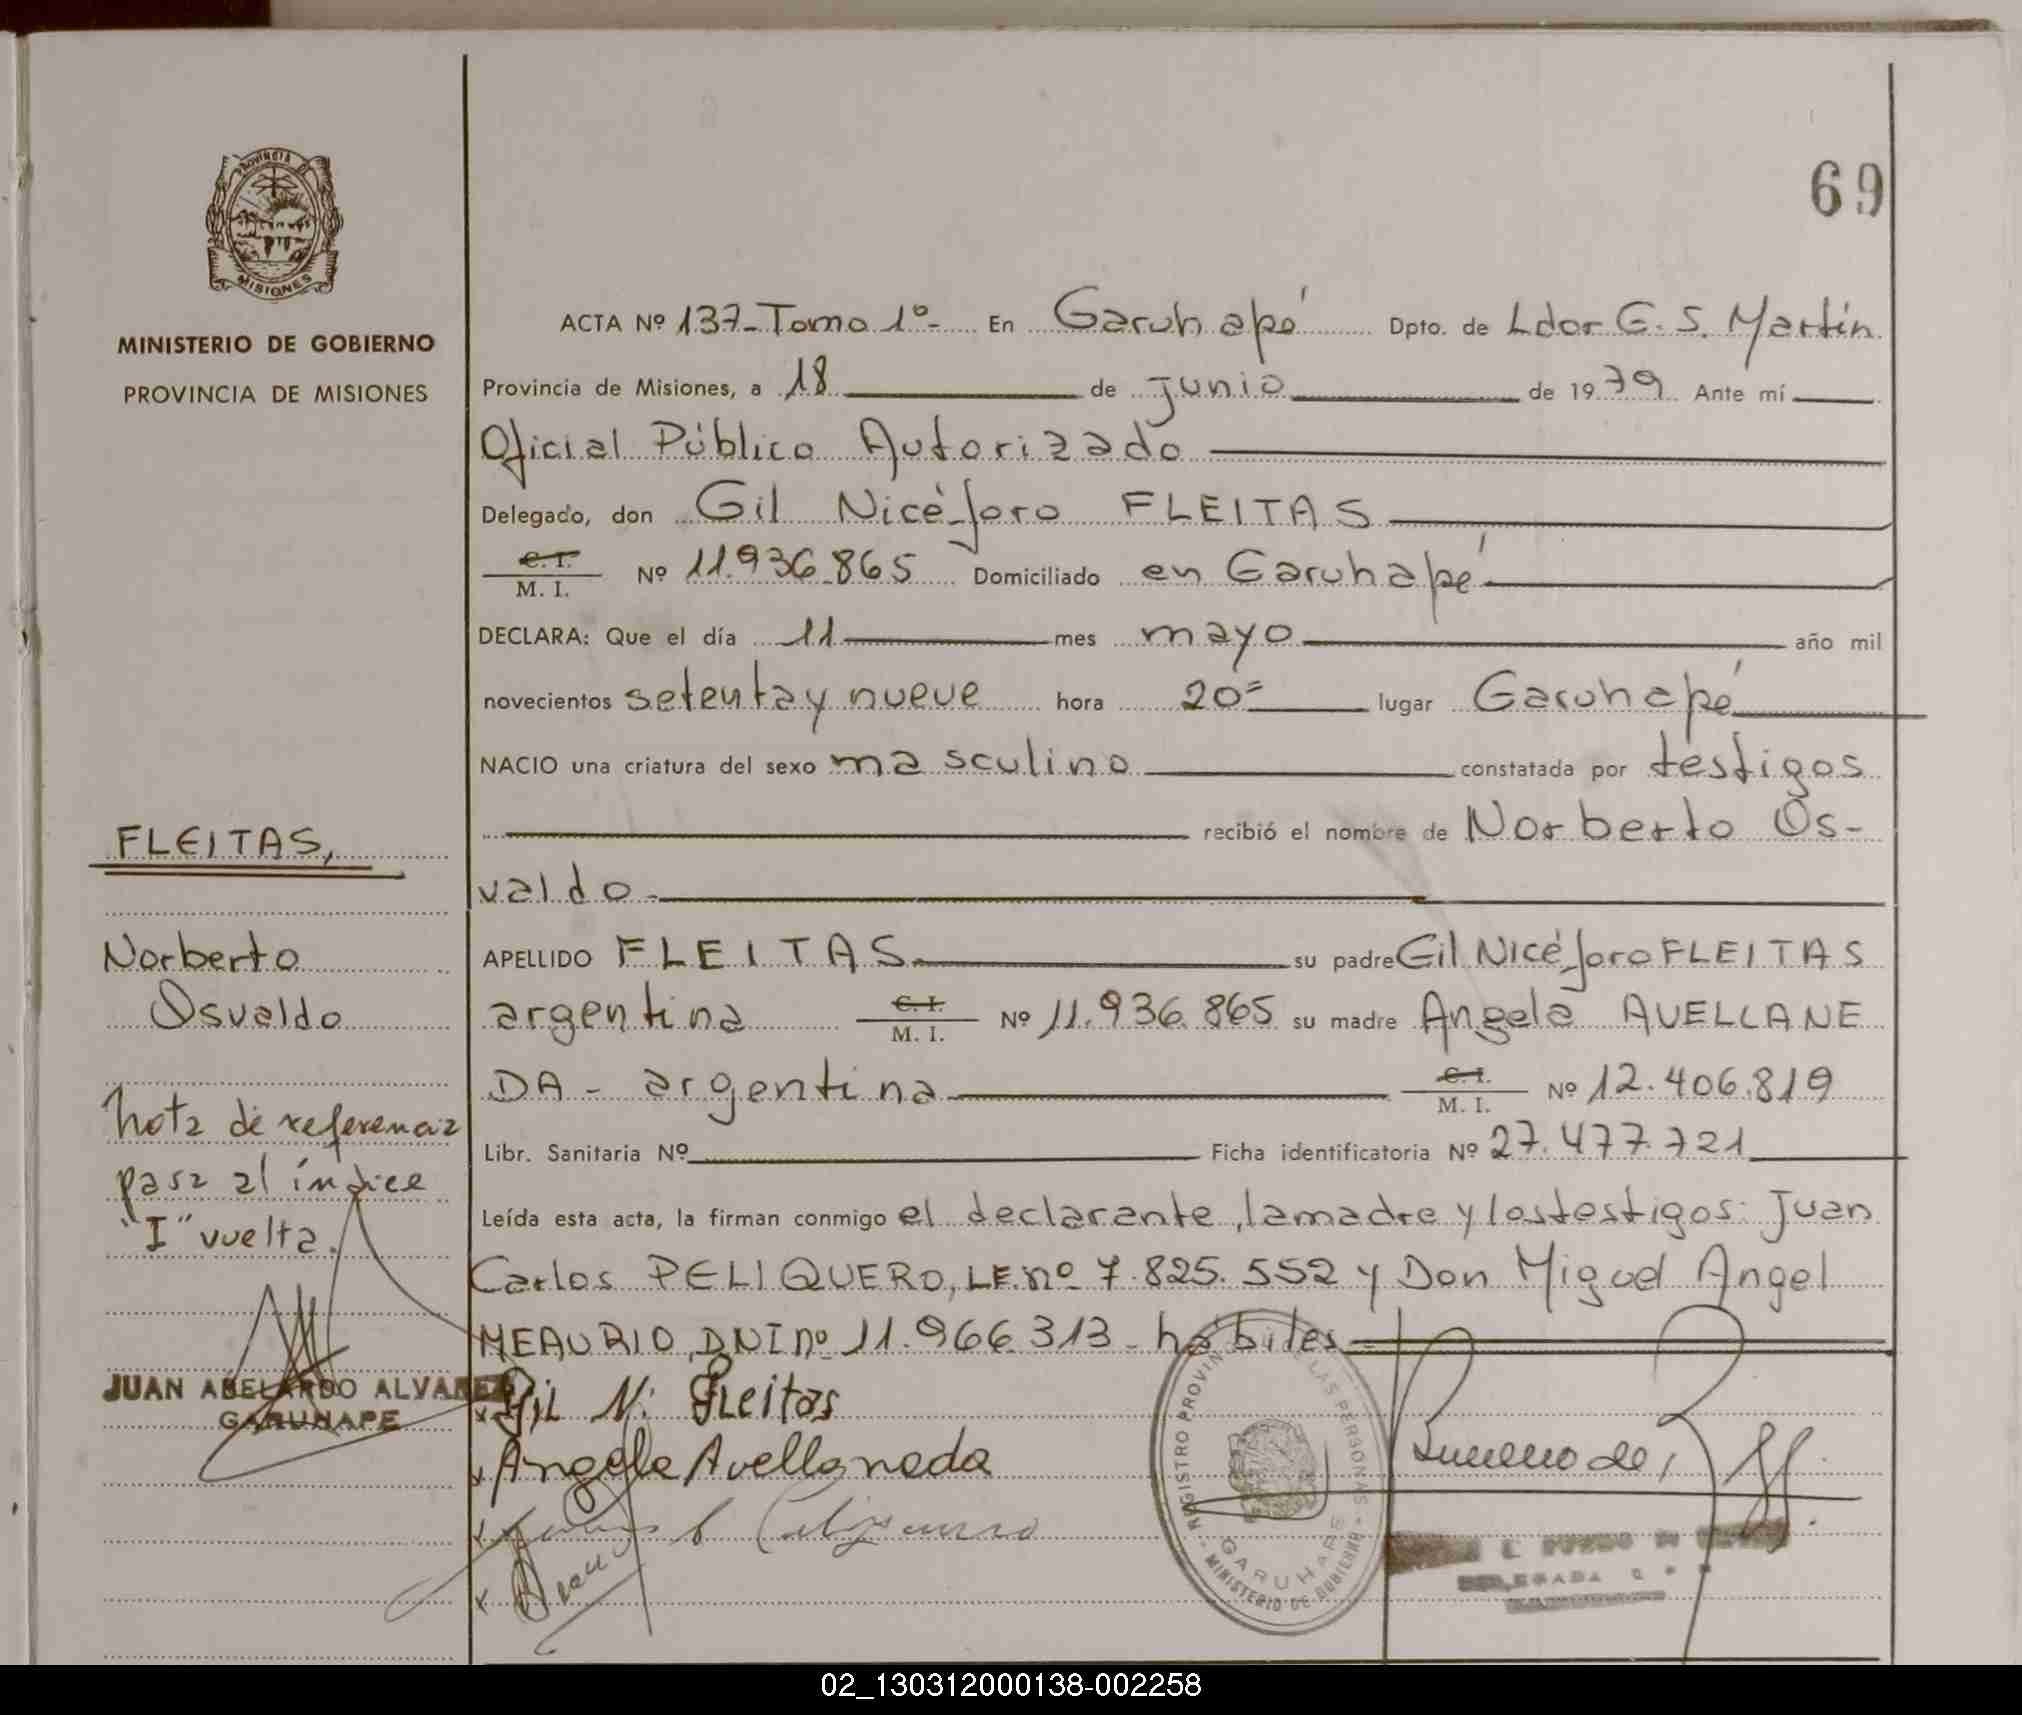 69
PROVINCIA D
MISIONES
MINISTERIO DE GOBIERNO
PROVINCIA DE MISIONES
ACTA Nº 137-Tomo 1º- En Garuhapé Dpto. de Ldor G. S. Martín
Provincia de Misiones, a 18 de junio de 1979 Ante mí
Oficial Público Autorizado
Delegado, don Gil Nicéforo FLEITAS
C. I.
M. I. Nº 11.936.865 Domiciliado en Garuhapé
DECLARA: Que el día 11 mes mayo año mil
novecientos setenta y nueve hora 20= lugar Garuhapé
NACIO una criatura del sexo masculino constatada por testigos
recibió el nombre de Norberto Os-
valdo-
APELLIDO FLEITAS su padre Gil Nicéforo FLEITAS
argentina C. I. M. I. Nº 11.936.865 su madre Angela AVELLANE
DA - argentina C. I. M. I. Nº 12.406.819
Libr. Sanitaria Nº Ficha identificatoria Nº 27.477.721
Leída esta acta, la firman conmigo el declarante, la madre y los testigos: Juan
Carlos PELIQUERO, LE.nº 7.825.552 y Don Miguel Angel
MEAURIO, DNI nº 11.966.313 - hábiles
Gil N. Fleitas
Angela Avellaneda
FLEITAS,
Norberto
Osvaldo
Nota de referencia
pasa al índice
"I" vuelta.
JUAN ABELARDO ALVAREZ
GARUHAPE
REGISTRO PROVINC DE LAS PERSONAS - MINISTERIO DE GOBIERNO -
GARUHAPE
DELEGADA
02_130312000138-002258